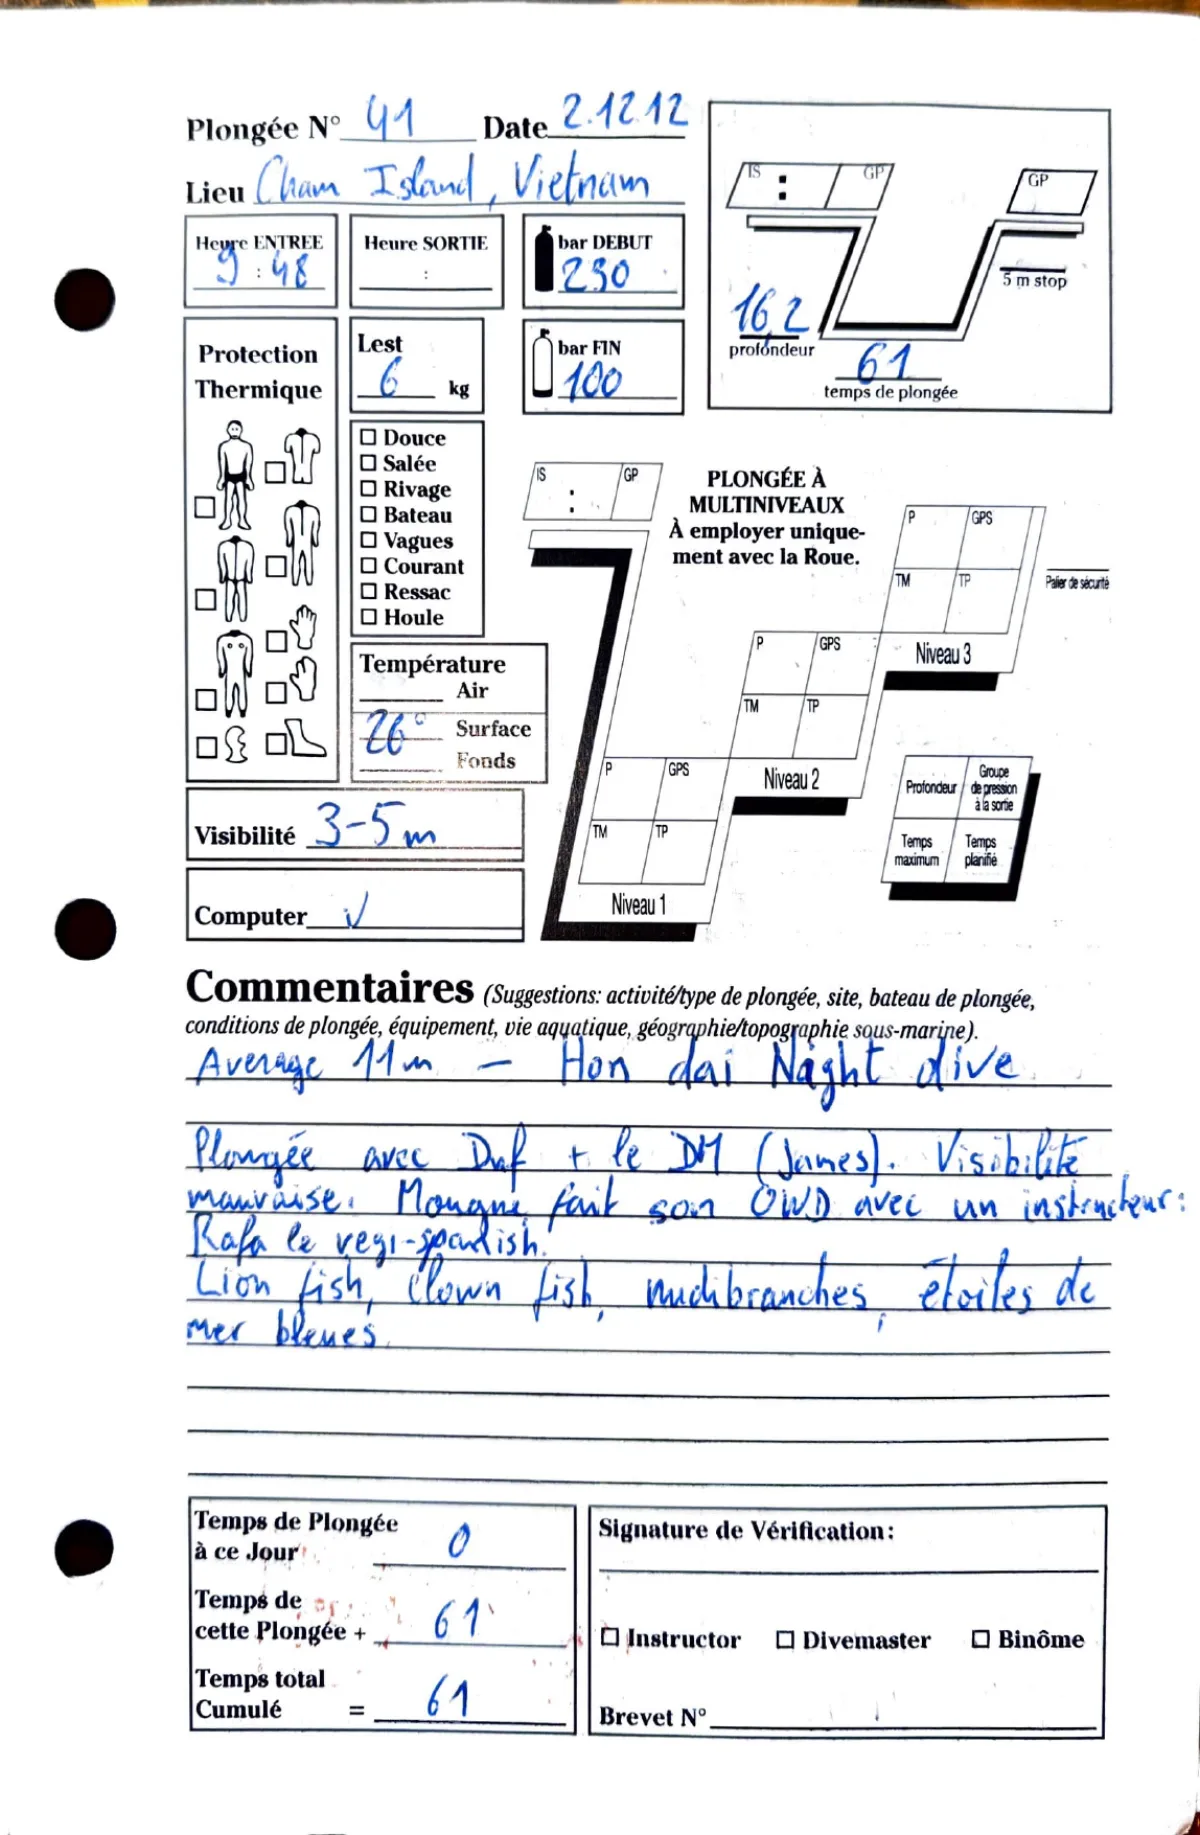 Plongée N° 41 Date 2.12.12
Lieu Cham Island, Vietnam
IS : GP
GP
5 m stop
16,2
profondeur
61
temps de plongée
Heure ENTREE
9 : 48
Heure SORTIE
:
bar DEBUT
230
Protection
Thermique
Lest
6 kg
bar FIN
100
Douce
Salée
Rivage
Bateau
Vagues
Courant
Ressac
Houle
Température
Air
26° Surface
Fonds
Visibilité 3-5 m
Computer √
IS : GP
PLONGÉE À
MULTINIVEAUX
À employer unique-
ment avec la Roue.
P GPS
TM TP
Palier de sécurité
Niveau 3
P GPS
TM TP
Niveau 2
P GPS
TM TP
Niveau 1
Profondeur
Groupe
de pression
à la sortie
Temps
maximum
Temps
planifié
Commentaires (Suggestions: activité/type de plongée, site, bateau de plongée,
conditions de plongée, équipement, vie aquatique, géographie/topographie sous-marine).
Average 11m - Hon dai Night dive
Plongée avec Daf + le DM (James). Visibilité
mauvaise. fait son OWD avec un instructeur:
Rafa le vegi-spanish.
Lion fish, Clown fish, nudibranches, étoiles de
mer bleues.
Temps de Plongée
à ce Jour 0
Temps de
cette Plongée + 61
Temps total
Cumulé = 61
Signature de Vérification:
Instructor Divemaster Binôme
Brevet N°